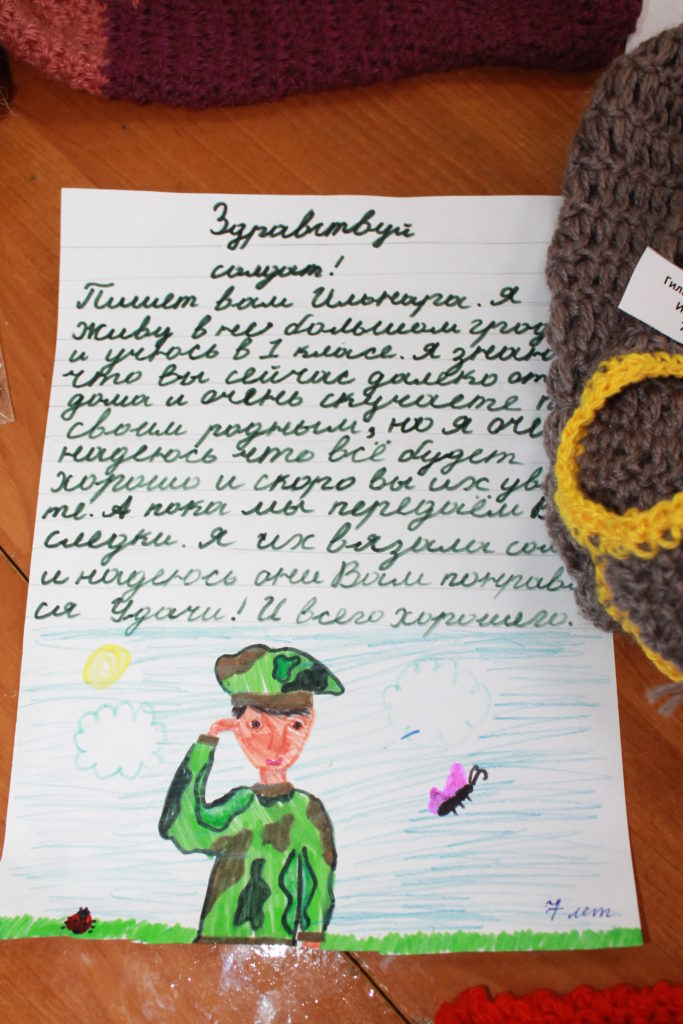 Здравствуй
солдат!
Пишет вам Ильнара. Я
живу в не большом грод
и учюсь в 1 класе. Я знаю
что вы сейчас далеко от
дома и очень скучаете п
своим родным, но я оче
надеюсь что всё будет
хорошо и скоро вы их уви
те. А пока мы передаём В
следки. Я их вязала сам
и надеюсь они Вам понрави
ся Удачи! И всего хорошего.
7 лет